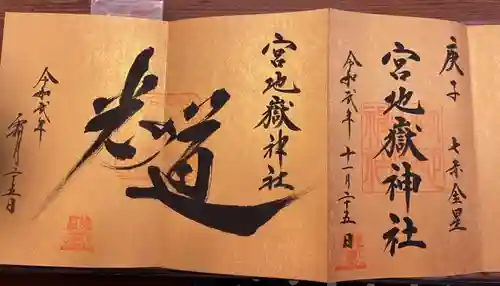 庚子 七赤金星
宮地嶽神社
令和弐年 十一月二十五日
宮地嶽神社
光の道
令和弐年
霜月二十五日